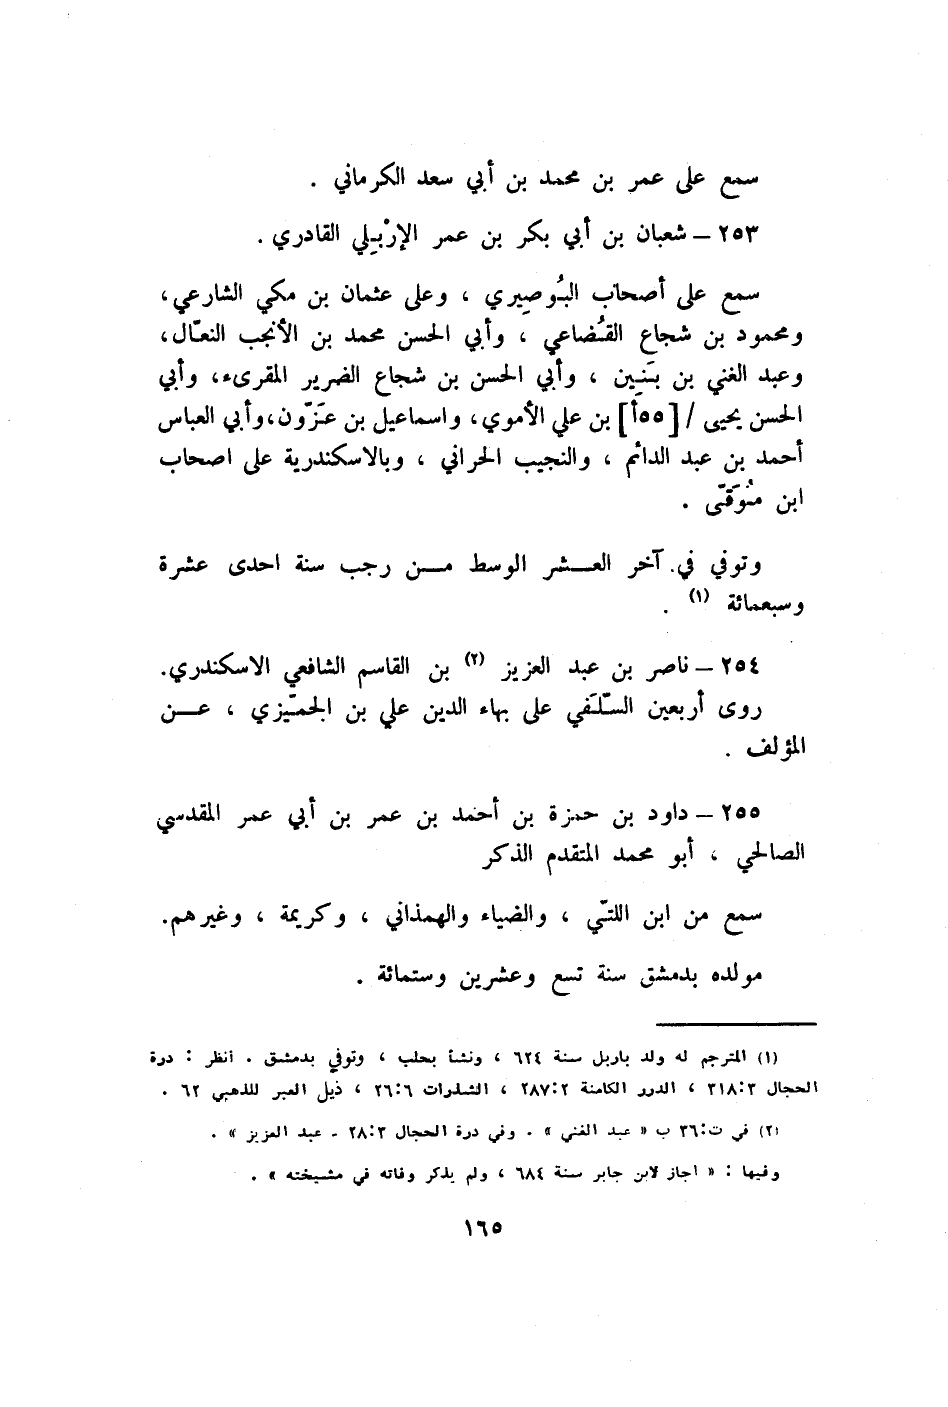 سمع على عمر بن محمد بن أبي سعد الكرماني .
٢٥٣ – شعبان بن أبي بكر بن عمر الإرْبِلي القادري .
سمع على أصحاب البُوصِيري ، وعلى عثمان بن مكي الشارعي ،
ومحمود بن شجاع القُضاعي ، وأبي الحسن محمد بن الأنجب النعّال ،
وعبد الغني بن بَنِين ، وأبي الحسن بن شجاع الضرير المقرىء، وأبي
الحسن يحيى / [٥٥أ] بن علي الأموي، واسماعيل بن عَزّون،وأبي العباس
أحمد بن عبد الدائم ، والنجيب الحراني ، وبالاسكندرية على اصحاب
ابن مُوَقّى .
وتوفي في. آخر العـشر الوسط مـن رجب سنة احدى عشرة
وسبعمائة (١) .
٢٥٤ – ناصر بن عبد العزيز (٢) بن القاسم الشافعي الاسكندري.
روى أربعين السّلَفي على بهاء الدين علي بن الجمّيزي ، عـن
المؤلف .
٢٥٥ – داود بن حمزة بن أحمد بن عمر بن أبي عمر المقدسي
الصالحي ، أبو محمد المتقدم الذكر
سمع من ابن اللتّي ، والضياء والهمذاني ، وكريمة ، وغيرهم.
مولده بدمشق سنة تسع وعشرين وستمائة .
(١) المترجم له ولد باربل سنة ٦٢٤ ، ونشأ بحلب ، وتوفي بدمشق . انظر : درة
الحجال ٣١٨:٣ ، الدرر الكامنة ٢٨٧:٢ ، الشذرات ٢٦:٦ ، ذيل العبر للذهبي ٦٢ .
(٢) في ت:٣٦ ب « عبد الغني » . وفي درة الحجال ٢٨:٣ - عبد العزيز » .
وفيها : « اجاز لابن جابر سنة ٦٨٤ ، ولم يذكر وفاته في مشيخته » .
١٦٥